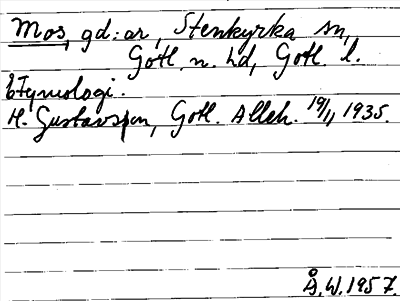 Mos, gd:ar, Stenkyrka sn,
Gotl. n. hd, Gotl. l.
Etymologi.
H. Gustavson, Gotl. Alleh. 19/11 1935.
Å.W. 1957.